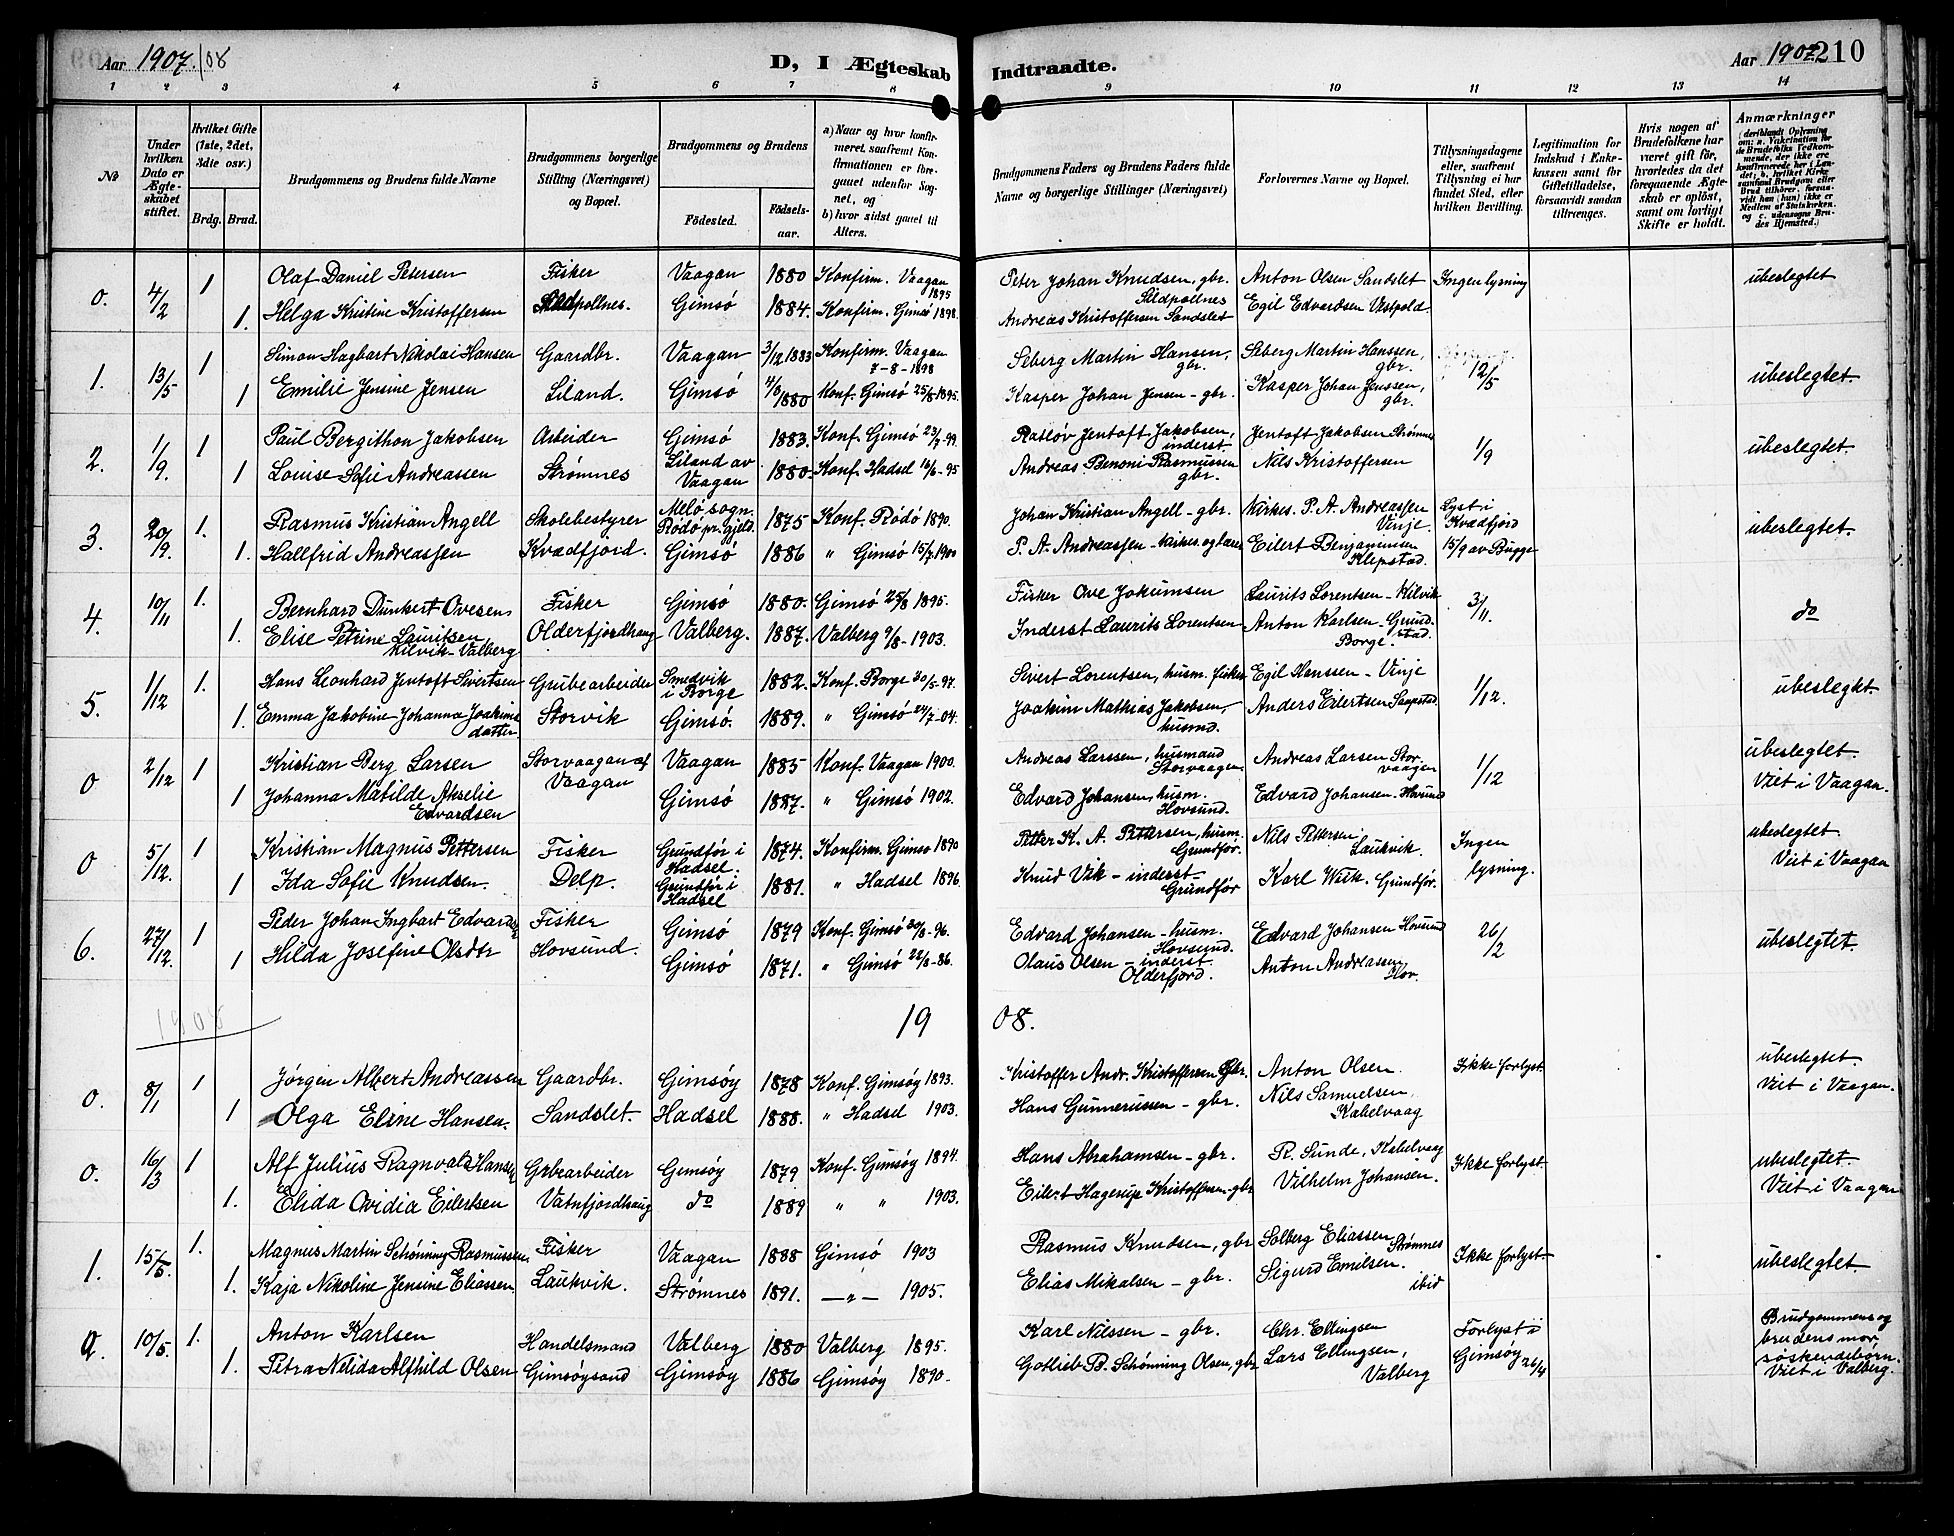 Aar 1907/08 D, I Ægteskab Indtraadte. Aar 1907 210
1 2 3 4 5 6 7 8 9 10 11 12 13 14
No
Under hvilken Dato er Ægteskabet stiftet.
Hvilket Gifte (1ste, 2det, 3die osv.)
Brdg. Brud.
Brudgommens og Brudens fulde Navne
Brudgommens borgerlige Stilling (Næringsvei) og Bopæl.
Brudgommens og Brudens
Födested. Födsels-aar.
a) Naar og hvor konfirmeret, saafremt Konfirmationen er foregaaet udenfor Sognet, og
b) hvor sidst gaaet til Alters.
Brudgommens Faders og Brudens Faders fulde Navne og borgerlige Stillinger (Næringsvei)
Forlovernes Navne og Bopæl.
Tillysningsdagene eller, saafremt Tillysning ei har fundet Sted, efter hvilken Bevilling.
Legitimation for Indskud i Enkekassen samt for Giftetilladelse, forsaavidt saadan tiltrænges.
Hvis nogen af Brudefolkene har været gift før, hvorledes da det foregaaende Ægteskab er oplöst, samt om lovligt Skifte er holdt.
Anmærkninger
0. 4/2 1 Olaf Daniel Petersen Fisker Vaagan 1880 Konfirm. Vaagan 1895 Peter Johan Knudsen, gbr. Sildpollnes Anton Olsen Sandslet Ingen lysning ubeslegtet
1. Helga Kristine Kristoffersen Sildpollnes. Gimsö 1884. Konfirm. Gimsö 1898. Andreas Kristoffersen Sandslet Egil Edvardsen Vestpold.
1. 13/5 1 Simon Hagbart Nikolai Hansen Gaardbr. Vaagan 3/12 1883 Konfirm. Vaagan 7-8-1898 Seberg Martin Hansen, gbr. Seberg Martin Hanssen, gbr. 12/5 ubeslegtet.
1 Emilie Jensine Jensen Liland. Gimsö 4/8 1880 Konf. Gimsö 25/8 1895. Kasper Johan Jensen - gbr. Kasper Johan Jenssen, gbr.
2. 1/9. 1 Paul Bergithon Jakobsen Arbeider Gimsö 1883. Konf. Gimsö 23/7-99. Ratlöv Jentoft Jakobsen, inderst. Jentoft Jakobsen Strømnes 1/9 ubeslegtet
1 Louise Sofie Andreassen Strømnes Liland av Vaagan 1880. Konf. Hadsel 16/6-95 Andreas Benoni Rasmussen gbr. Nils Kristoffersen
3. 20/9. 1. Rasmus Kristian Angell Skolebestyrer Melö sogn. Rödö pr.gjeld. 1875 Konf. Rödö 1890. Johan Kristian Angell - gbr. Kirkes. P. A. Andreassen Vinje. Lyst i Kvædfjord ubeslegtet.
1. Hallfrid Andreassen Kvædfjord. Gimsö 1886 " Gimsö 15/7 1900 P. A. Andreassen - kirkes. og lærer Eilert Benjaminsen Klepstad. 15/9 av Bugge
4. 10/11 1. Bernhard Dunkert Ovesen Fisker Gimsö 1880. Gimsö 25/8 1895. Fisker Ove Jokumsen Laurits Lorentsen - Kilvik 3/11. do
1. Elise Petrine Lauritsen Kilvik - Valberg Olderfjordhaug Valberg. 1887. Valberg 9/8-1903. Inderst Laurits Lorentsen Anton Karlsen - Grundstad. Borge.
5. 1/12 1. Hans Leonhard Jentoft Sivertsen Grubearbeider Smedvik i Borge 1882. Konf. Borge 30/5-97. Sivert Lorentsen, husm. fisker Egil Hanssen - Vinje 1/12. ubeslegtet.
1. Emma Jakobine Johanna Joakims datter Storvik Gimsö. 1889. " Gimsö 24/7-04. Joakim Mathias Jakobsen, husmd. Anders Eilertsen Saupstad.
0 2/12 1 Kristian Berg Larsen Storvaagan af Vaagan Vaagan 1885 Konf. Vaagan 1900. Andreas Larssen, husmand Storvaagen. Andreas Larsen Storvaagen 1/12 ubeslegtet
1 Johanna Matilde Akselie Edvardsen Gimsö 1887. " Gimsö 1902. Edvard Johansen, husm. Hovsund. Edvard Johansen. Hovsund Viet i Vaagan.
0 5/12. 1 Kristian Magnus Pettersen Fisker Grundför i Hadsel. 1874. Konfirm. Gimsö 1890 Petter K. A. Pettersen, husm. Grundför. Nils Pettersen Laukvik. Ingen lysning. ubeslegtet.
1 Ida Sofie Knudsen. Delp. Grundför i Hadsel 1881. " Hadsel 1896 Knud Vik - inderst Grundför Karl Wiik. Grundför. Viet i Vaagan
6. 27/12. 1 Peder Johan Ingbart Edvardsen Fisker Gimsö 1879 Konf. Gimsö 30/8-96. Edvard Johansen - husm. Hovsund. Edvard Johansen Hovsund 26/2 ubeslegtet.
1 Hilda Josefine Olsdtr Hovsund. Gimsö 1871. " Gimsö 22/8-86. Olaus Olsen - inderst Olderfjord. Anton Andreassen Hov.
1908 1908.
0. 8/1 1 Jørgen Albert Andreassen Gaardbr. Gimsöy 1878 Konf. Gimsöy 1893. Kristoffer Andr. Kristoffersen Gbr. Anton Olsen. Ikke forlyst. ubeslegtet.
1 Olga Eline Hansen. Sandslet. Hadsel 1888. " Hadsel 1903. Hans Gunnerussen - gbr. Nils Samuelsen, Kabelvaag Viet i Vaagan.
0. 16/3 1 Alf Julius Ragnvald Hansen Grbearbeider Gimsöy 1879 Konf. Gimsöy 1894. Hans Abrahamsen - gbr. R. Sunde, Kabelvaag Ikke forlyst. ubeslegtet.
1. Elida Ovidia Eilertsen Vatnfjordhaug do 1889 " " 1903. Eilert Hagerup Kristoffersen - gbr Vilhelm Johansen. Viet i Vaagan
1. 15/5. 1. Magnus Martin Schønning Rasmussen. Fisker Vaagan 1888 Gimsö 1903 Rasmus Knudsen, gbr Solberg Eliassen Strømnes Ikke forlyst. ubeslegtet
1. Kaja Nikoline Jensine Eliassen Laukvik. Strømnes 1891. - " - 1905. Elias Mikalsen - gbr. Sigurd Emilsen. ibid
0. 10/5. 1. Anton Karlsen Handelsmand Valberg 1880 Valberg 1895. Karl Nilssen - gbr. Chr. Ellingsen Forlyst i Gimsöy 26/4 Brudgommens og brudens mor søskendebörn. Viet i Valberg.
1. Petra Nelida Alfhild Olsen Gimsøysand Gimsöy 1886 Gimsöy 1890. Gotlieb B. Schønning Olsen, gbr Lars Ellingsen, Valberg